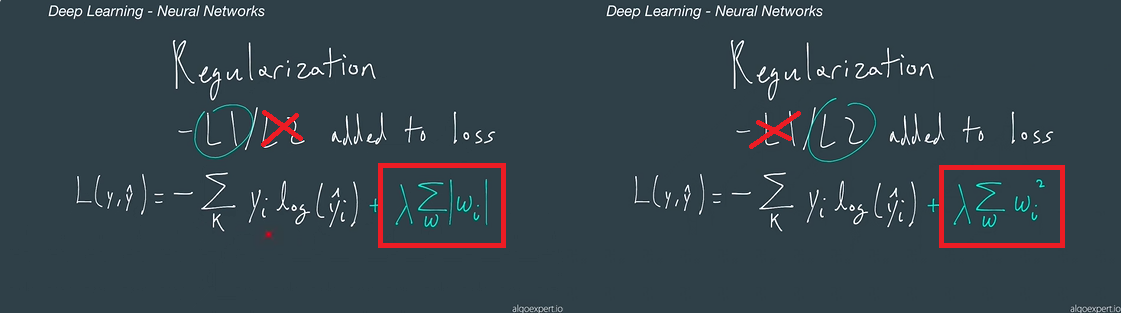 Deep Learning - Neural Networks
Regularization
- L1/L2 added to loss
L(y,ŷ) = - Σ_K y_i log(ŷ_i) + λ Σ_w |w_i|
algoexpert.io
Deep Learning - Neural Networks
Regularization
- L1/L2 added to loss
L(y,ŷ) = - Σ_K y_i log(ŷ_i) + λ Σ_w w_i²
algoexpert.io